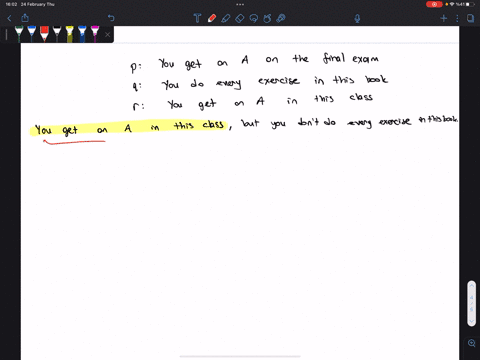 16:02 24 February Thu
%41
p: You get on A on the final exam
q: You do every exercise in this book
r: You get on A in this class
You get on A in this class, but you don't do every exercise in this book